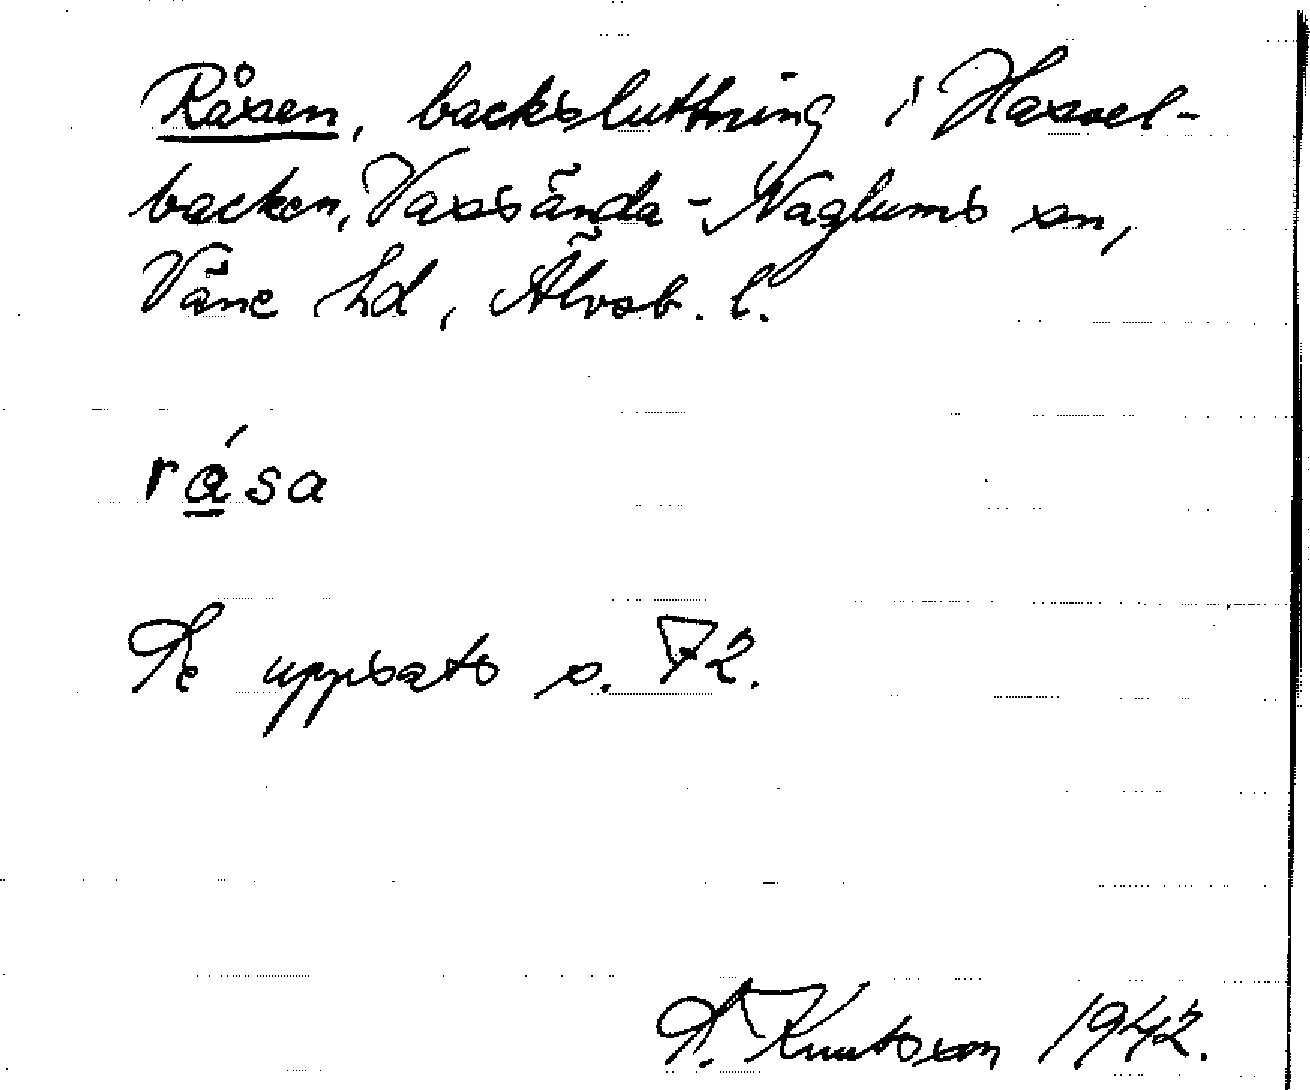 Råsen, backsluttning i Hassel-
backen, Vassända-Naglums sn,
Väne hd, Älvsb. l.
rása
Se uppsats s. 72.
A. Knutsson 1942.